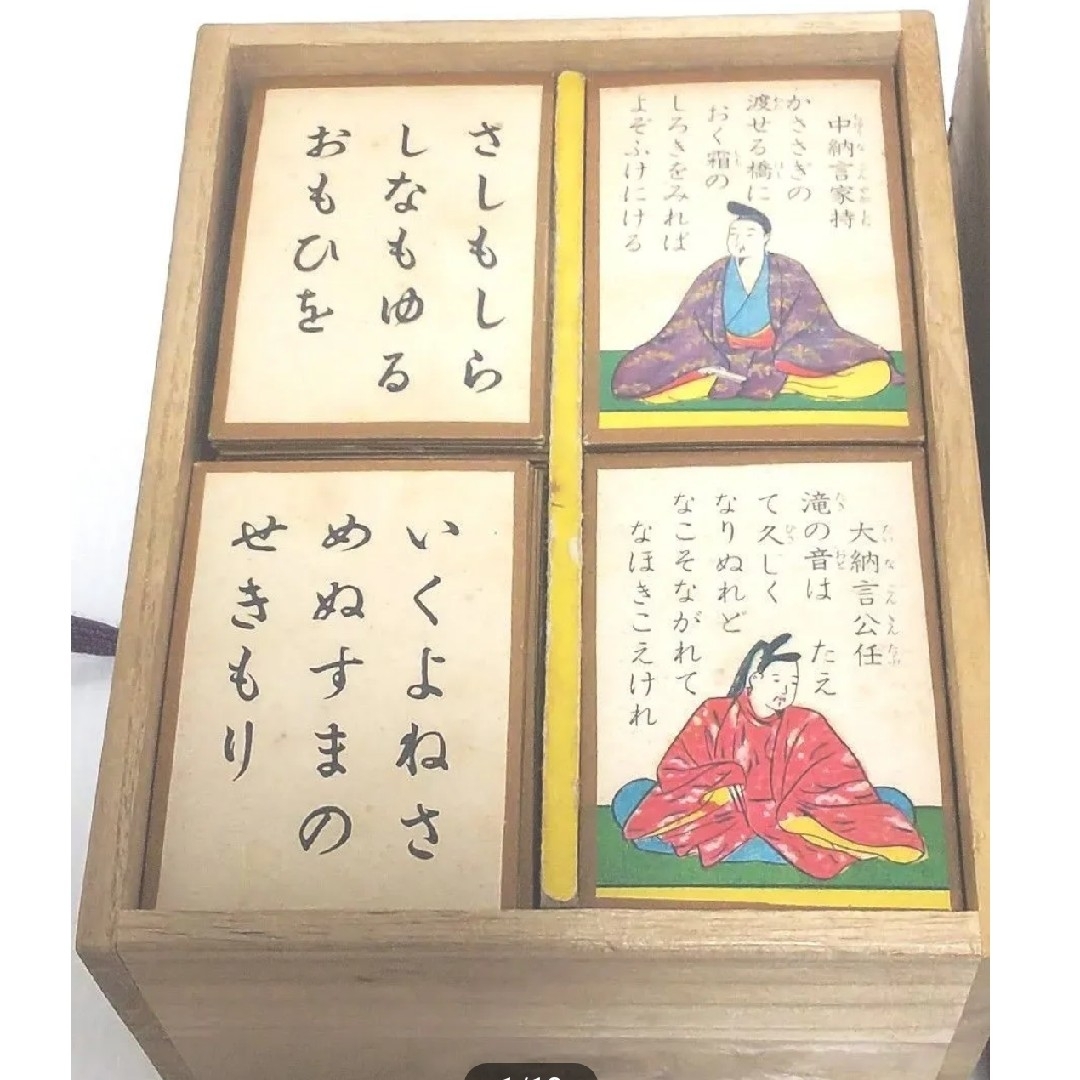 さしもしら
しなもゆる
おもひを
中納言家持
かささぎの
渡せる橋に
おく霜の
しろきをみれば
よぞふけにける
いくよねさ
めぬすまの
せきもり
大納言公任
滝の音は たえ
て久しく
なりぬれど
なこそながれて
なほきこえけれ